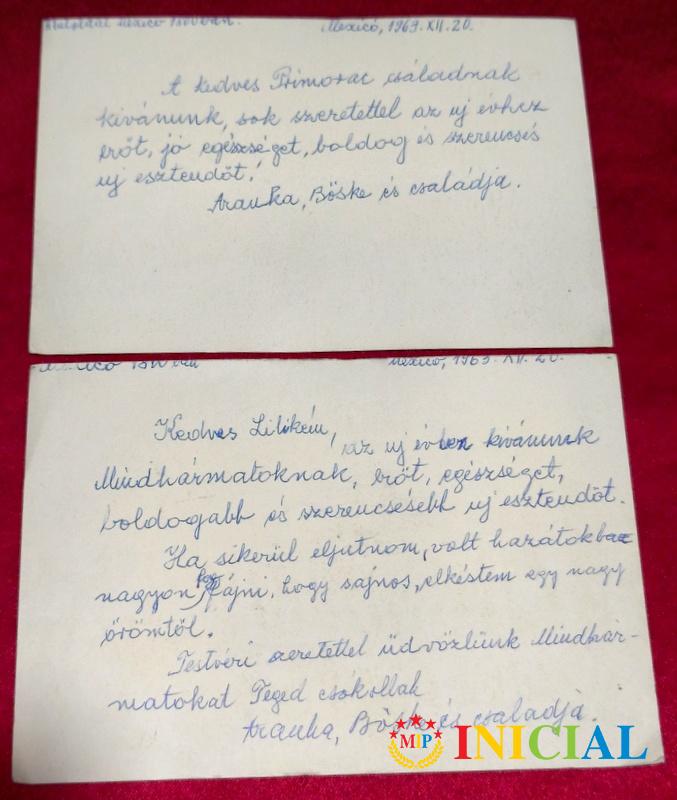 Mexico, 1969. XII. 20.
A kedves Primorac családnak
kivánunk, sok szeretettel az uj évhez
erőt, jó egészséget, boldog és szerencsés
uj esztendőt!
Aranka, Böske és családja.
Mexico, 1969. XII. 20.
Kedves Lilikém,
az uj évben kivánunk
Mindhármatoknak, erőt, egészséget,
boldogabb és szerencsésebb uj esztendőt.
Ha sikerül eljutnom, volt hazátokba
nagyon fog fájni, hogy sajnos, elkéstem egy nagy
örömtöl.
Testvéri szeretettel üdvözlünk Mindhár-
matokat Téged csókollak
Aranka, Böske és családja.
MIP INICIAL